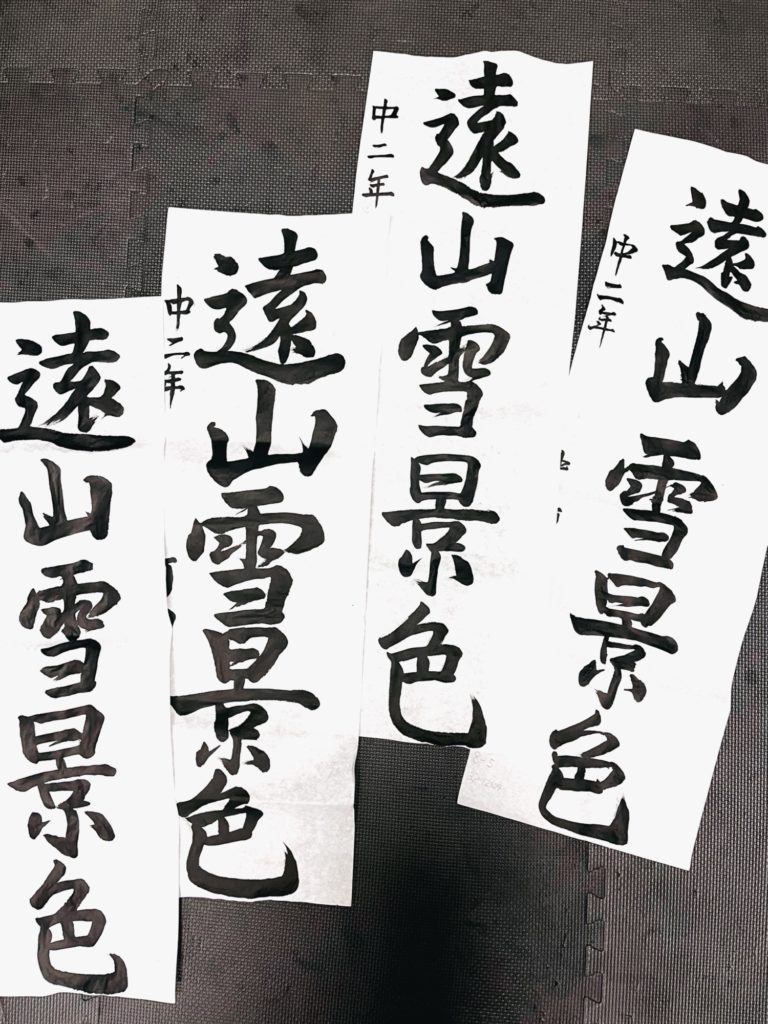 遠山雪景色
中二年
遠山雪景色
中二年
遠山雪景色
中二年
遠山雪景色